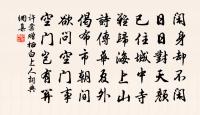 閑身却不閑
日日對天顏
已住城中寺
難歸海上山
詩傳華夏外
偈布市朝間
欲問空門事
空門豈有關
許棠贈栖白上人詞典
網集